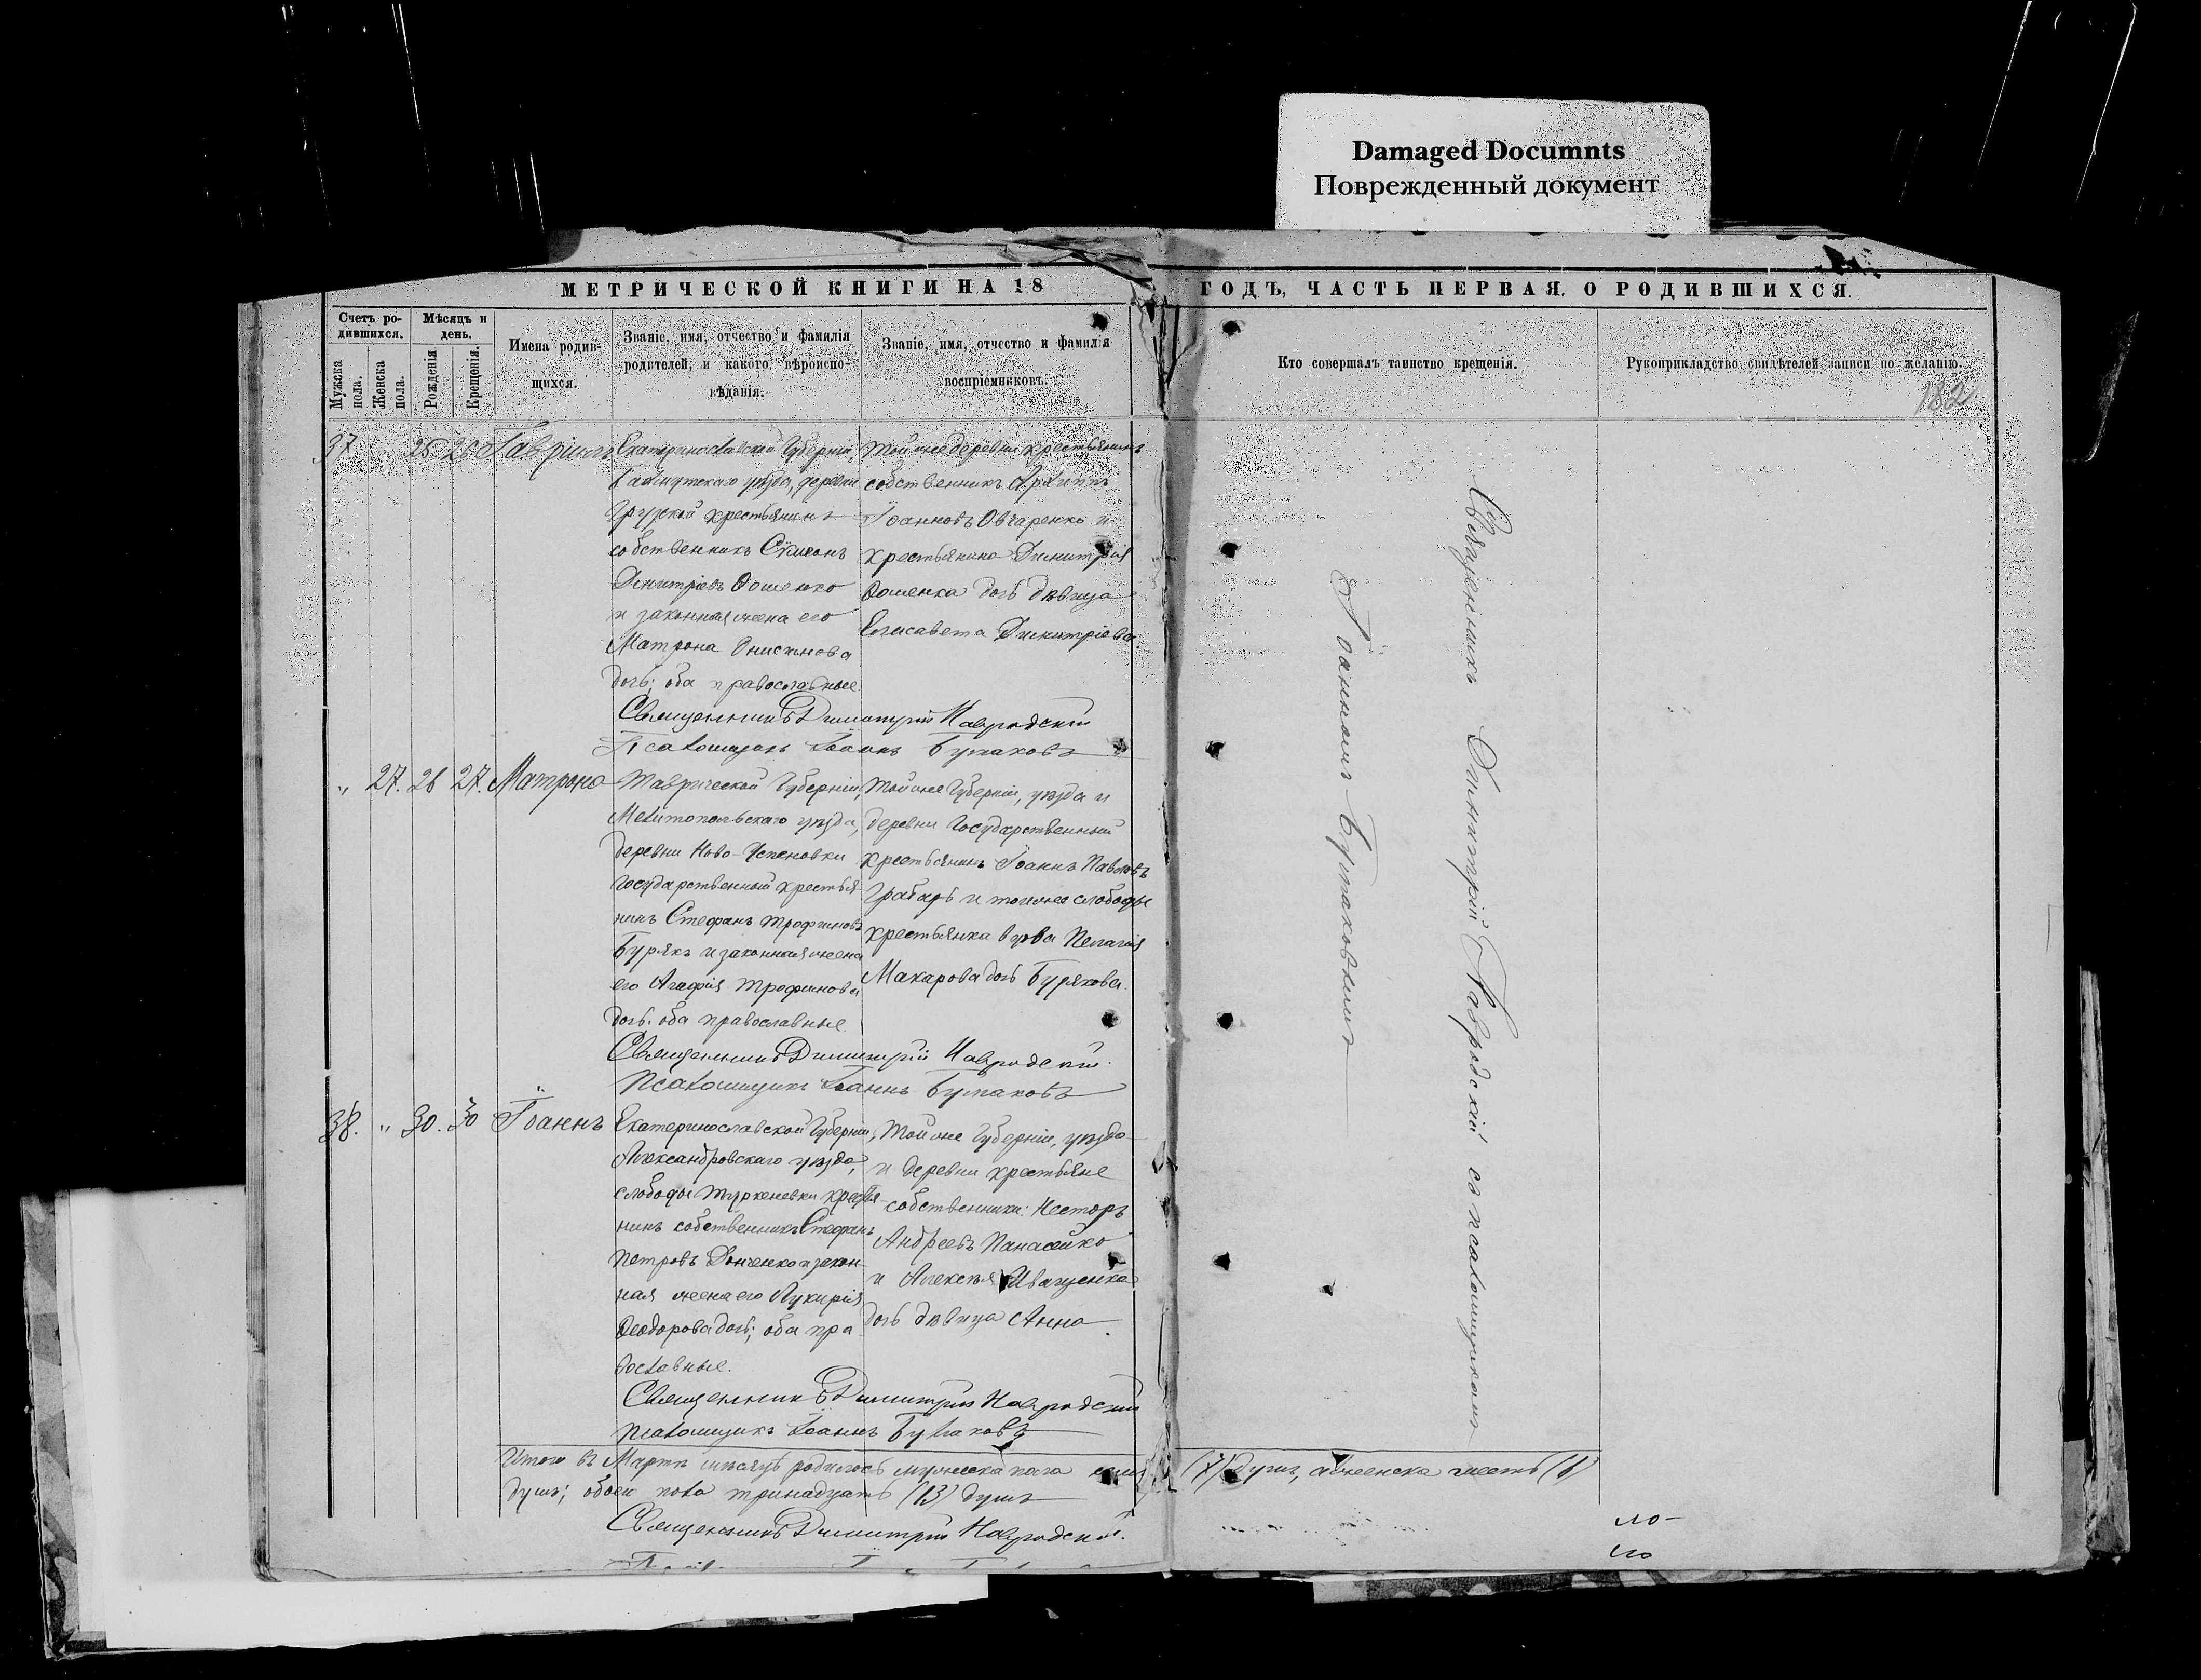 Damaged Documnts
Поврежденный документ
МЕТРИЧЕСКОЙ КНИГИ НА 18
ГОДЪ, ЧАСТЬ ПЕРВАЯ, О РОДИВШИХСЯ.
Счетъ ро-
дившихся.
Мужска
пола.
Женска
пола.
Мѣсяцъ и
день.
Рожденія
Крещенія.
Имена родив-
щихся.
Званіе, имя, отчество, и фамилія
родителей, и какого вѣроиспо-
вѣданія.
Званіе, имя, отчество и фамилія
воспріемниковъ.
Кто совершалъ таинство крещенія.
Рукоприкладство свидѣтелей записи по желанію.
182
37 25 26 Гавріилъ
Екатеринославской Губерніи,
Бахмутскаго уѣзда, деревни
Грузской крестьянинъ
собственникъ Сѵмеонъ
Димитріевъ Ѳоменко
и законная жена его
Матрона Онисимова
дочь; оба православные.
Той же деревни крестьянинъ
собственникъ Архиппъ
Іоанновъ Овчаренко и
крестьянина Димитрія
Ѳоменка дочь дѣвица
Елисавета Димитріева.
Священникъ Димитрій Навродскій
Псаломщикъ Іоаннъ Булаковъ
" 27. 26 27. Матрона
Таврической Губерніи,
Мелитопольскаго уѣзда,
деревни Ново-Успеновки
Государственный крестья-
нинъ Стефанъ Трофимовъ
Бурякъ и законная жена
его Агафія Трофимова
дочь. оба православные.
Той же Губерніи, уѣзда и
деревни Государственный
крестьянинъ Іоаннъ Павловъ
Грабарь и той же слободы
крестьянка вдова Пелагія
Макарова дочь Бурякова.
Священникъ Димитрій Навродскій.
Псаломщикъ Іоаннъ Булаковъ
38. " 30. 30 Іоаннъ
Екатеринославской Губерніи,
Александровскаго уѣзда,
слободы Туркеневки крестья-
нинъ собственникъ Стефанъ
Петровъ Донченко и закон-
ная жена его Лукирія
Ѳеодорова дочь; оба пра
вославные.
Той же Губерніи, уѣзда
и деревни крестьяне
собственники: Несторъ
Андреевъ Панасейко
и Алексѣя Иващенка
дочь дѣвица Анна.
Священникъ Димитрій Навродскій
Псаломщикъ Іоаннъ Булаковъ
Священникъ Димитрій Навродскій со псаломщикомъ
Іоанномъ Булаковымъ
Итого въ Мартѣ мѣсяцѣ родилось мужеска пола семь (7) душъ, а женска шесть (6)
душъ; обоего пола тринадцать (13) душъ
Священникъ Димитрій Навродскій.